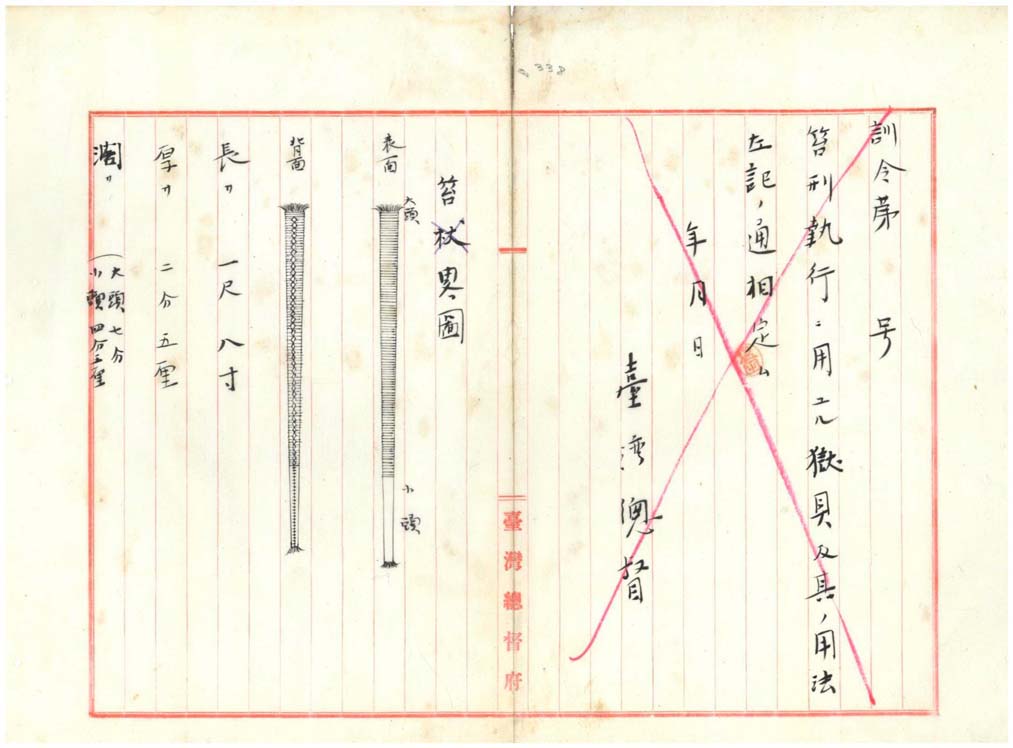 8338
訓令第　号
笞刑執行ニ用ユル獄具及其ノ用法
左記ノ通相定ム
年月日
臺湾總督
臺灣總督府
笞杖畧圖
表面
大頭
小頭
背面
長〃　一尺八寸
厚〃　二分五厘
濶〃
大頭七分
小頭四分五厘